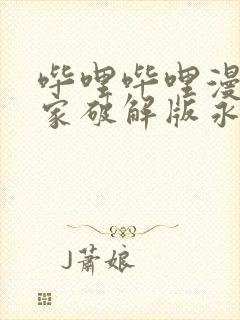 哔哩哔哩漫
家破解版永
J萧娘